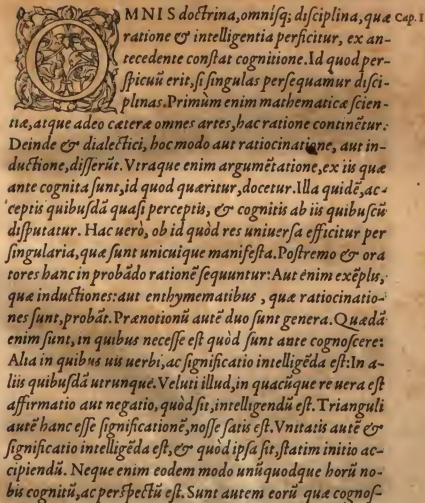 OMNIS doctrina, omnisq; disciplina, quæ Cap. I
ratione & intelligentia perficitur, ex an-
tecedente constat cognitione. Id quod per-
spicuũ erit, si singulas persequamur disci-
plinas. Primùm enim mathematicæ scien-
tiæ, atque adeo cæteræ omnes artes, hac ratione continẽtur.
Deinde & dialectici, hoc modo aut ratiocinatione, aut in-
ductione, disserũt. Vtraque enim argumẽtatione, ex iis quæ
ante cognita sunt, id quod quæritur, docetur. Illa quidẽ, ac-
ceptis quibusdã quasi perceptis, & cognitis ab iis quibuscũ
disputatur. Hac uerò, ob id quòd res uniuersa efficitur per
singularia, quæ sunt unicuique manifesta. Postremo & ora
tores hanc in probãdo rationẽ sequuntur: Aut enim exẽplis,
quæ inductiones: aut enthymematibus, quæ ratiocinatio-
nes sunt, probãt. Prænotionũ autẽ duo sunt genera. Quædã
enim sunt, in quibus necesse est quòd sunt ante cognoscere:
Alia in quibus uis uerbi, ac significatio intelligẽda est: In a-
liis quibusdã utrunque. Veluti illud, in quacũque re uera est
affirmatio aut negatio, quòd sit, intelligendũ est. Trianguli
autẽ hanc esse significationẽ, nosse satis est. Vnitatis autẽ &
significatio intelligẽda est, & quòd ipsa sit, statim initio ac-
cipiendũ. Neque enim eodem modo unũquodque horũ no-
bis cognitũ, ac perspectũ est. Sunt autem eorũ quæ cognos-